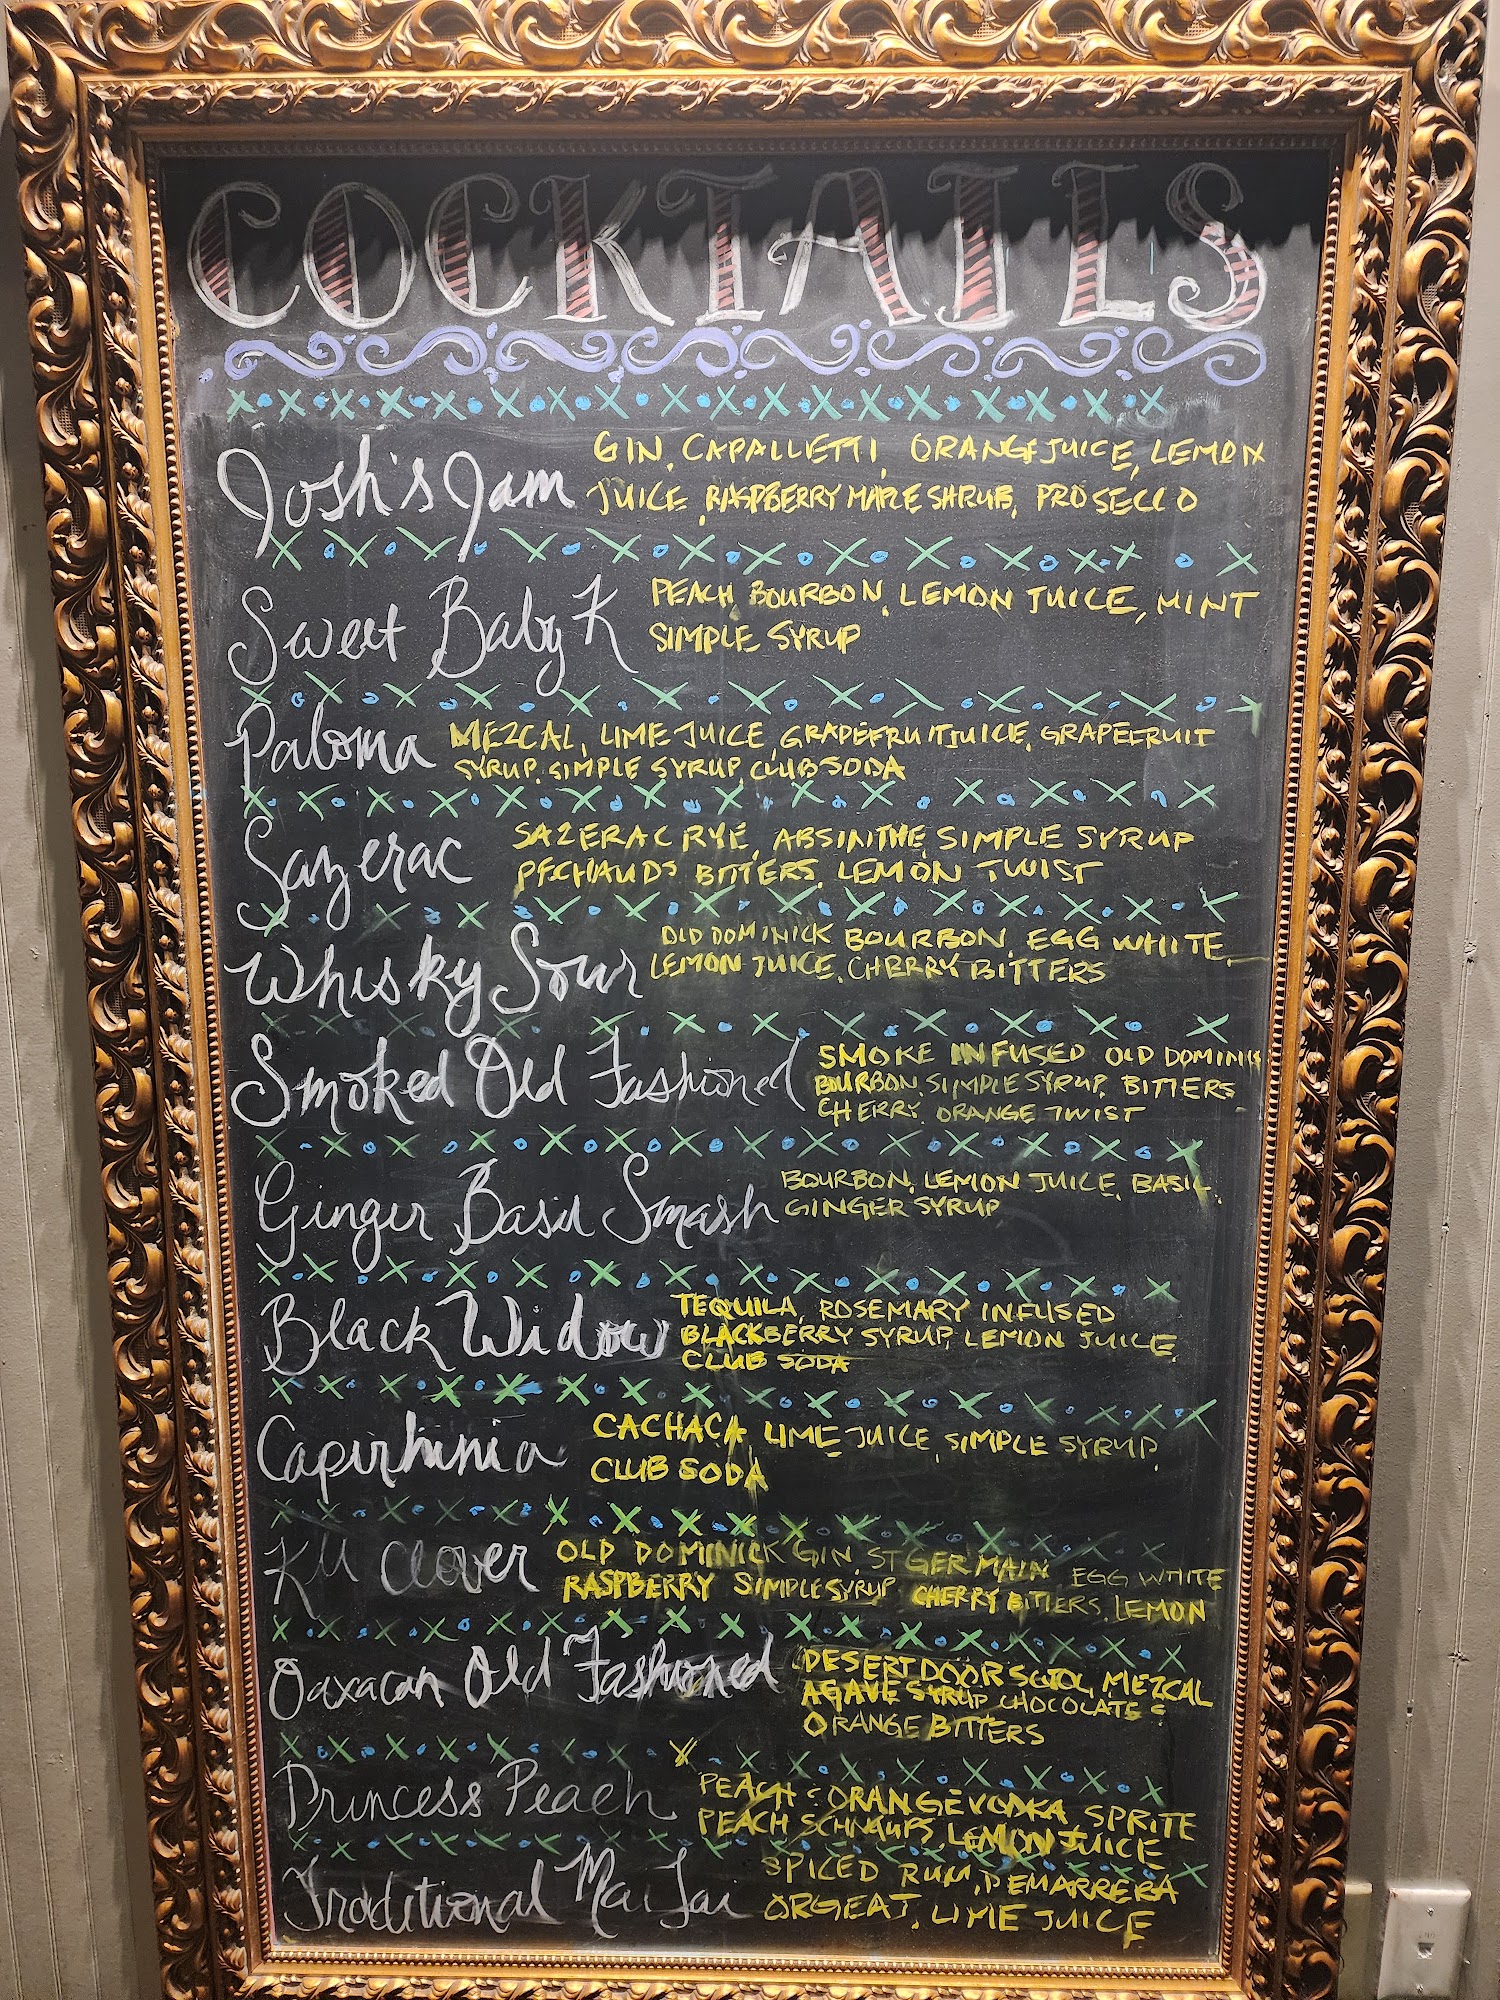 COCKTAILS
Josh's Jam
GIN, CAPALLETTI, ORANGE JUICE, LEMON
JUICE, RASPBERRY MAPLE SHRUB, PROSECCO
Sweet Baby K
PEACH BOURBON, LEMON JUICE, MINT
SIMPLE SYRUP
Paloma
MEZCAL, LIME JUICE, GRAPEFRUIT JUICE, GRAPEFRUIT
SYRUP, SIMPLE SYRUP, CLUB SODA
Sazerac
SAZERAC RYE, ABSINTHE SIMPLE SYRUP
PECHAUDS BITTERS, LEMON TWIST
Whisky Sour
OLD DOMINICK BOURBON, EGG WHITE,
LEMON JUICE, CHERRY BITTERS
Smoked Old Fashioned
SMOKE INFUSED OLD DOMINIK
BOURBON, SIMPLE SYRUP, BITTERS
CHERRY, ORANGE TWIST
Ginger Basil Smash
BOURBON, LEMON JUICE, BASIL,
GINGER SYRUP
Black Widow
TEQUILA, ROSEMARY INFUSED
BLACKBERRY SYRUP, LEMON JUICE,
CLUB SODA
Capirhinia
CACHACA LIME JUICE, SIMPLE SYRUP,
CLUB SODA
Clover
OLD DOMINICK GIN, ST GERMAIN EGG WHITE
RASPBERRY SIMPLE SYRUP CHERRY BITTERS, LEMON
Oaxacan Old Fashioned
DESERT DOOR SOTOL, MEZCAL
AGAVE SYRUP, CHOCOLATE &
ORANGE BITTERS
Princess Peach
PEACH & ORANGE VODKA, SPRITE
PEACH SCHNAUPS, LEMON JUICE
Traditional Mai Tai
SPICED RUM, DEMARRERA
ORGEAT, LIME JUICE